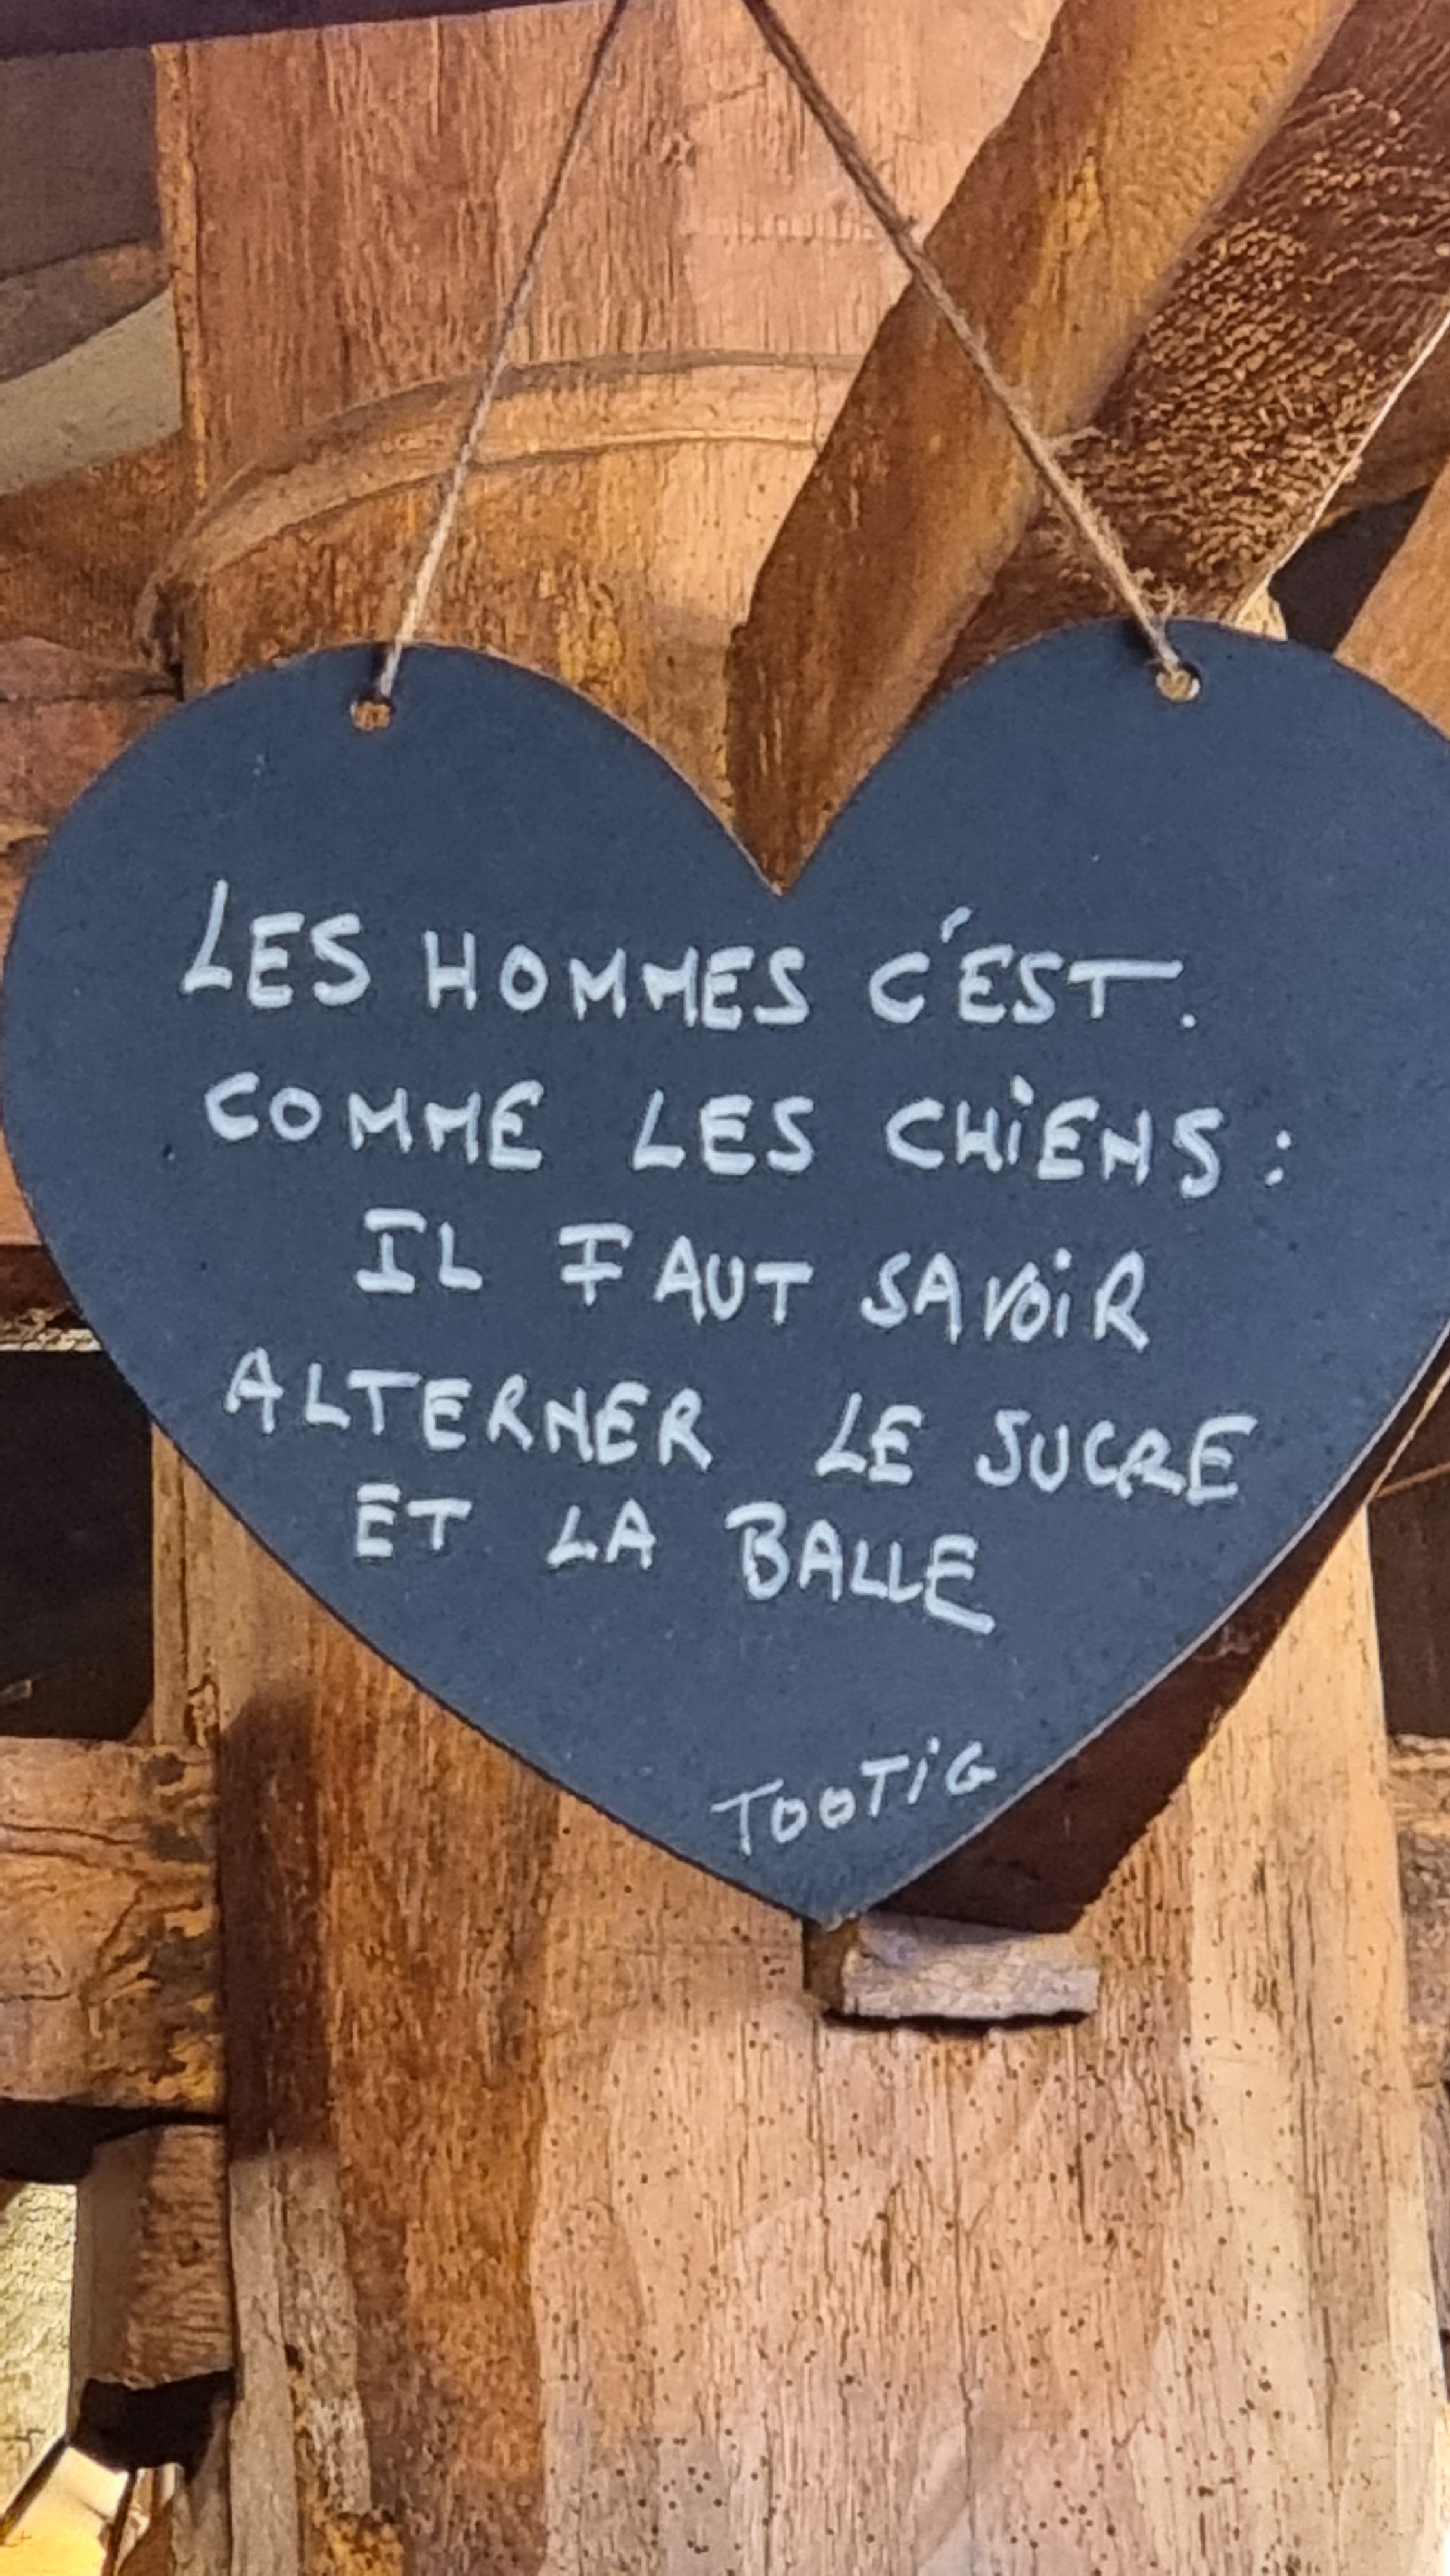 LES HOMMES C'EST.
COMME LES CHiENS :
IL FAUT SAVOiR
ALTERNER LE SUCRE
ET LA BALLE
TOOTiG